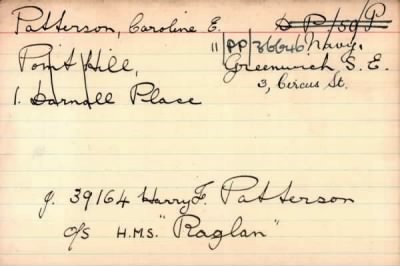 Patterson, Caroline E. D P/59/P
11/PP/36646/Navy.
Point Hill, Greenwich S.E.
1. Darnall Place 3, Circus St.
J. 39164 Harry F. Patterson
O/S H.M.S. "Raglan"